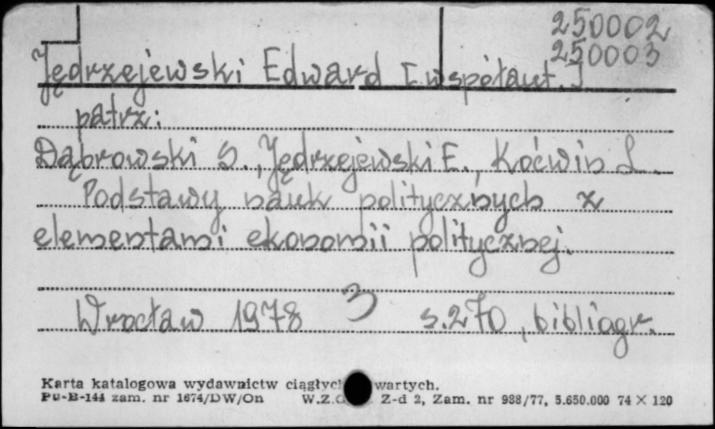 250002
250003
Jędrzejewski Edward [współaut.]
patrz:
Dąbrowski S., Jędrzejewski E., Koćwin L.
Podstawy nauk politycznych z
elementami ekonomii politycznej.
Wrocław 1978 3 s.270, bibliogr.
Karta katalogowa wydawnictw ciągłych wartych.
Pu-B-144 zam. nr 1674/DW/On W.Z.G. Z-d 2, Zam. nr 988/77, 5.650.000 74 × 120